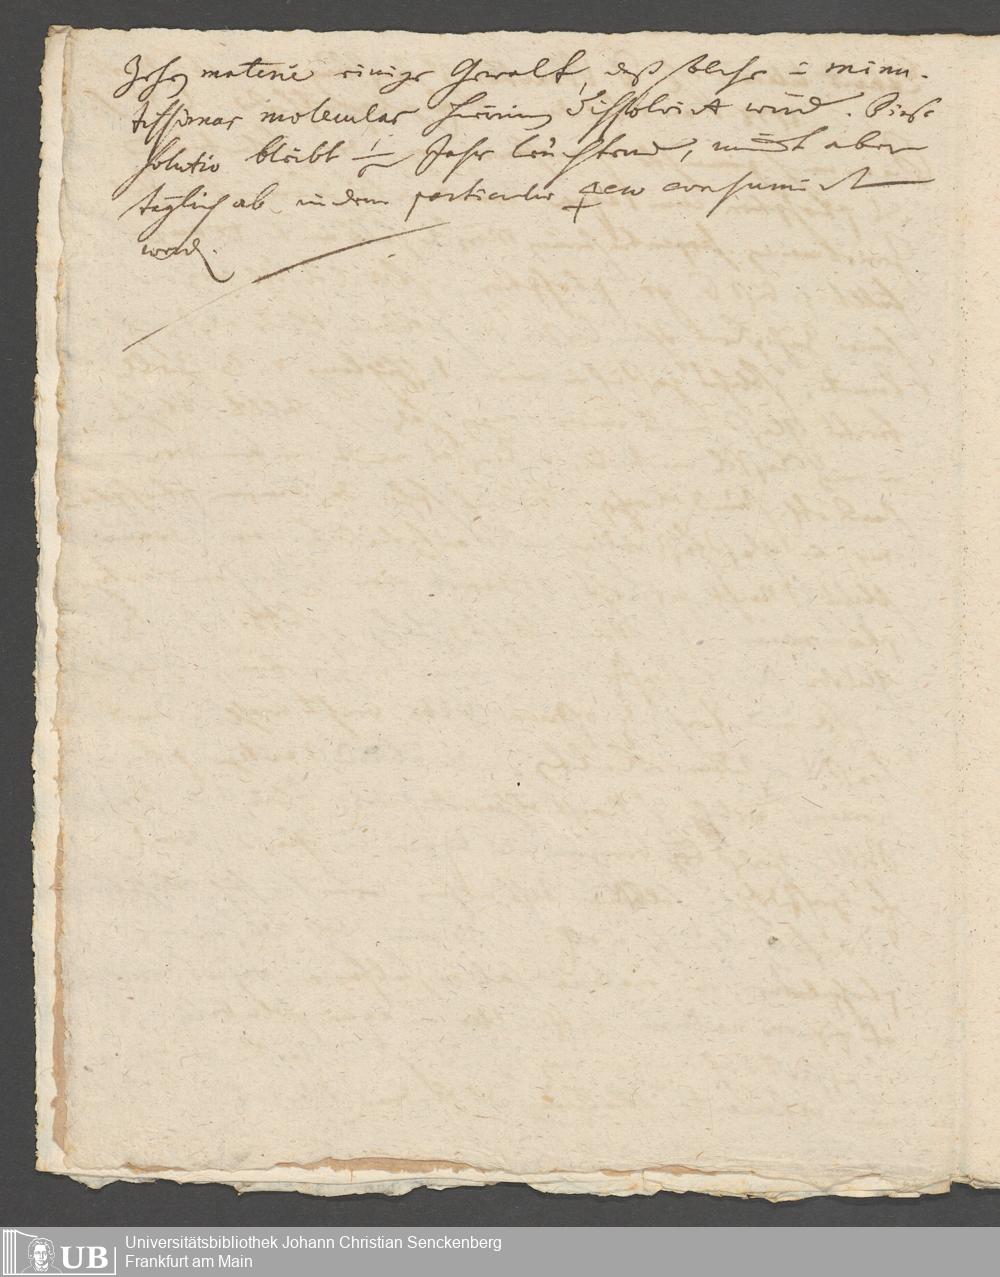 materie einige Gewalt, daß solche in minu-
tissimas moleculas hierin dissolvirt wird. Diese
solutio bleibt 1/2 Jahr leuchtend, nimbt aber
täglich ab, indem particulae consumirt
werd.
Universitätsbibliothek Johann Christian Senckenberg
Frankfurt am Main
UB